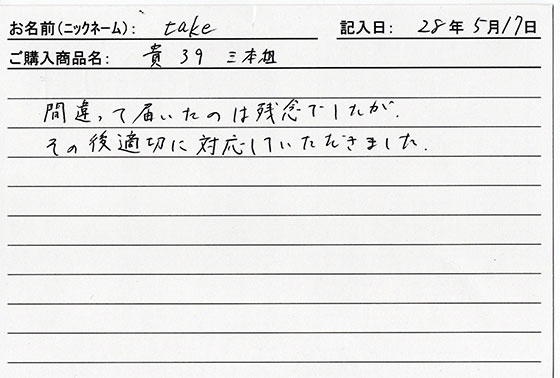 お名前(ニックネーム): take 記入日: 28年5月17日
ご購入商品名: 貴 39 三本組
間違って届いたのは残念でしたが、
その後適切に対応していただきました。